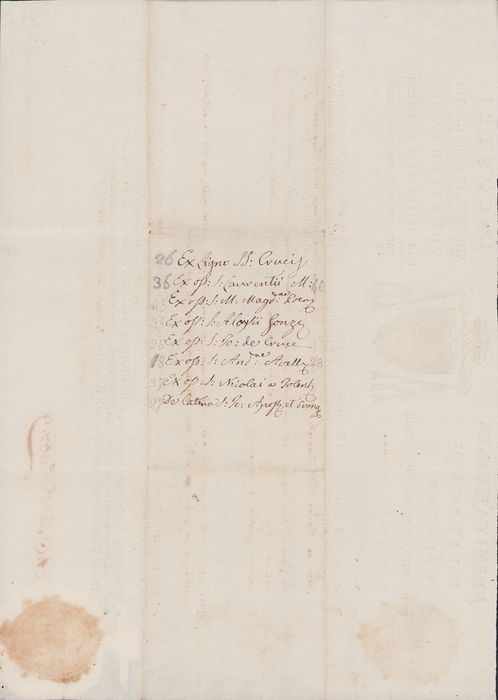 26 Ex Ligno SS: Crucis
36 Ex oss: S: Laurentii M: 40
Ex oss: S: M: Magd:nae Poenz
Ex oss: S: Aloysii Gonz
Ex oss: S: Jo: de Cruce
18 Ex oss: S: And:reae Avell 28
37 Ex oss: S: Nicolai a Tolent
De Catena S: Jo: Apost: et Evang